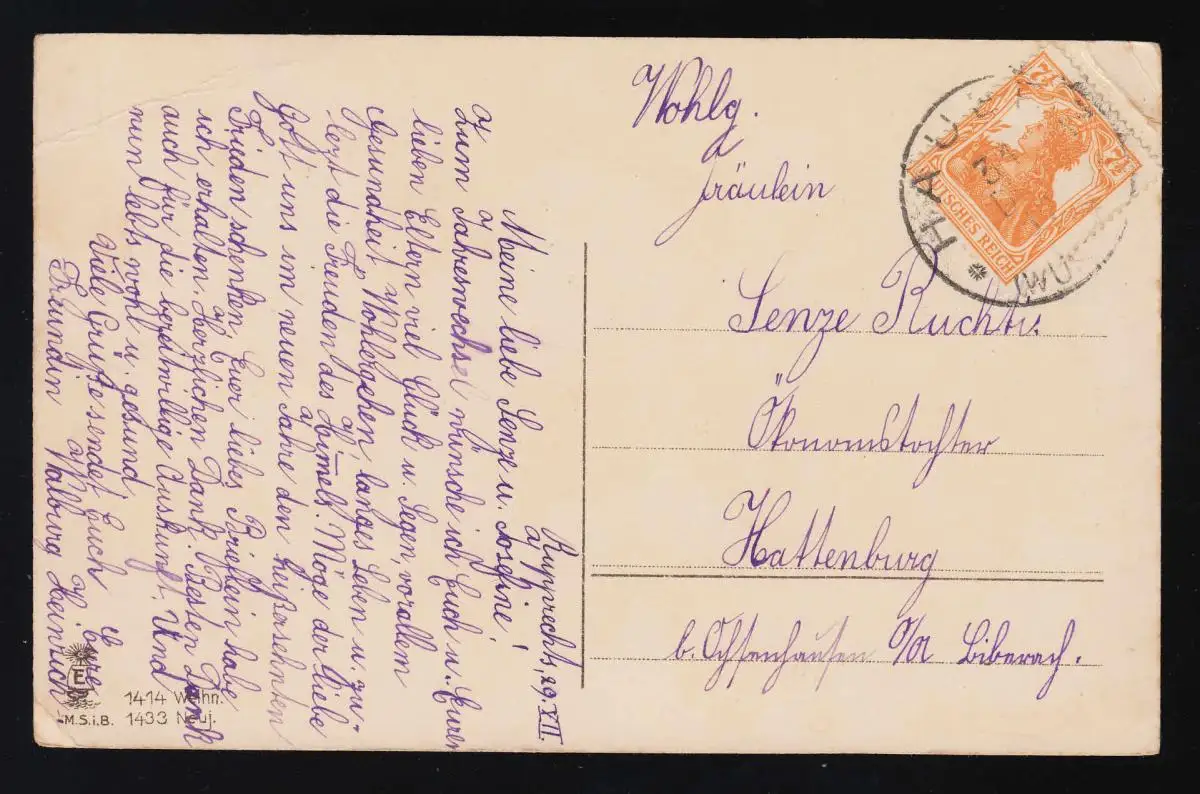 Rupprechts, 29. XII.
Meine liebe Senze u. Josefine!
Zum Jahreswechsel wünsche ich Euch u. Euren
lieben Eltern viel Glück u. Segen, vorallem
Gesundheit, Wohlergehen, langes Leben u. zu-
lezt die Freuden des Himels. Möge der liebe
Gott uns im neuen Jahre den heißersehnten
Frieden schenken, Euer liebes Brieflein habe
ich erhalten. Herzlichen Dank. Besten Dank
auch für die bereitwillige Auskunft. Und
nun lebts wohl u. gesund
Viele Grüße sendet Euch Eure
Freundin Walburg Heinrich
E
M.S.i.B.
1414 Weihn.
1433 Neuj.
Wohlg.
Fräulein
Senze
Ökonomstochter
Hattenburg
b. Ochsenhausen O/A Biberach.
7½
7½
DEUTSCHES REICH
HAU